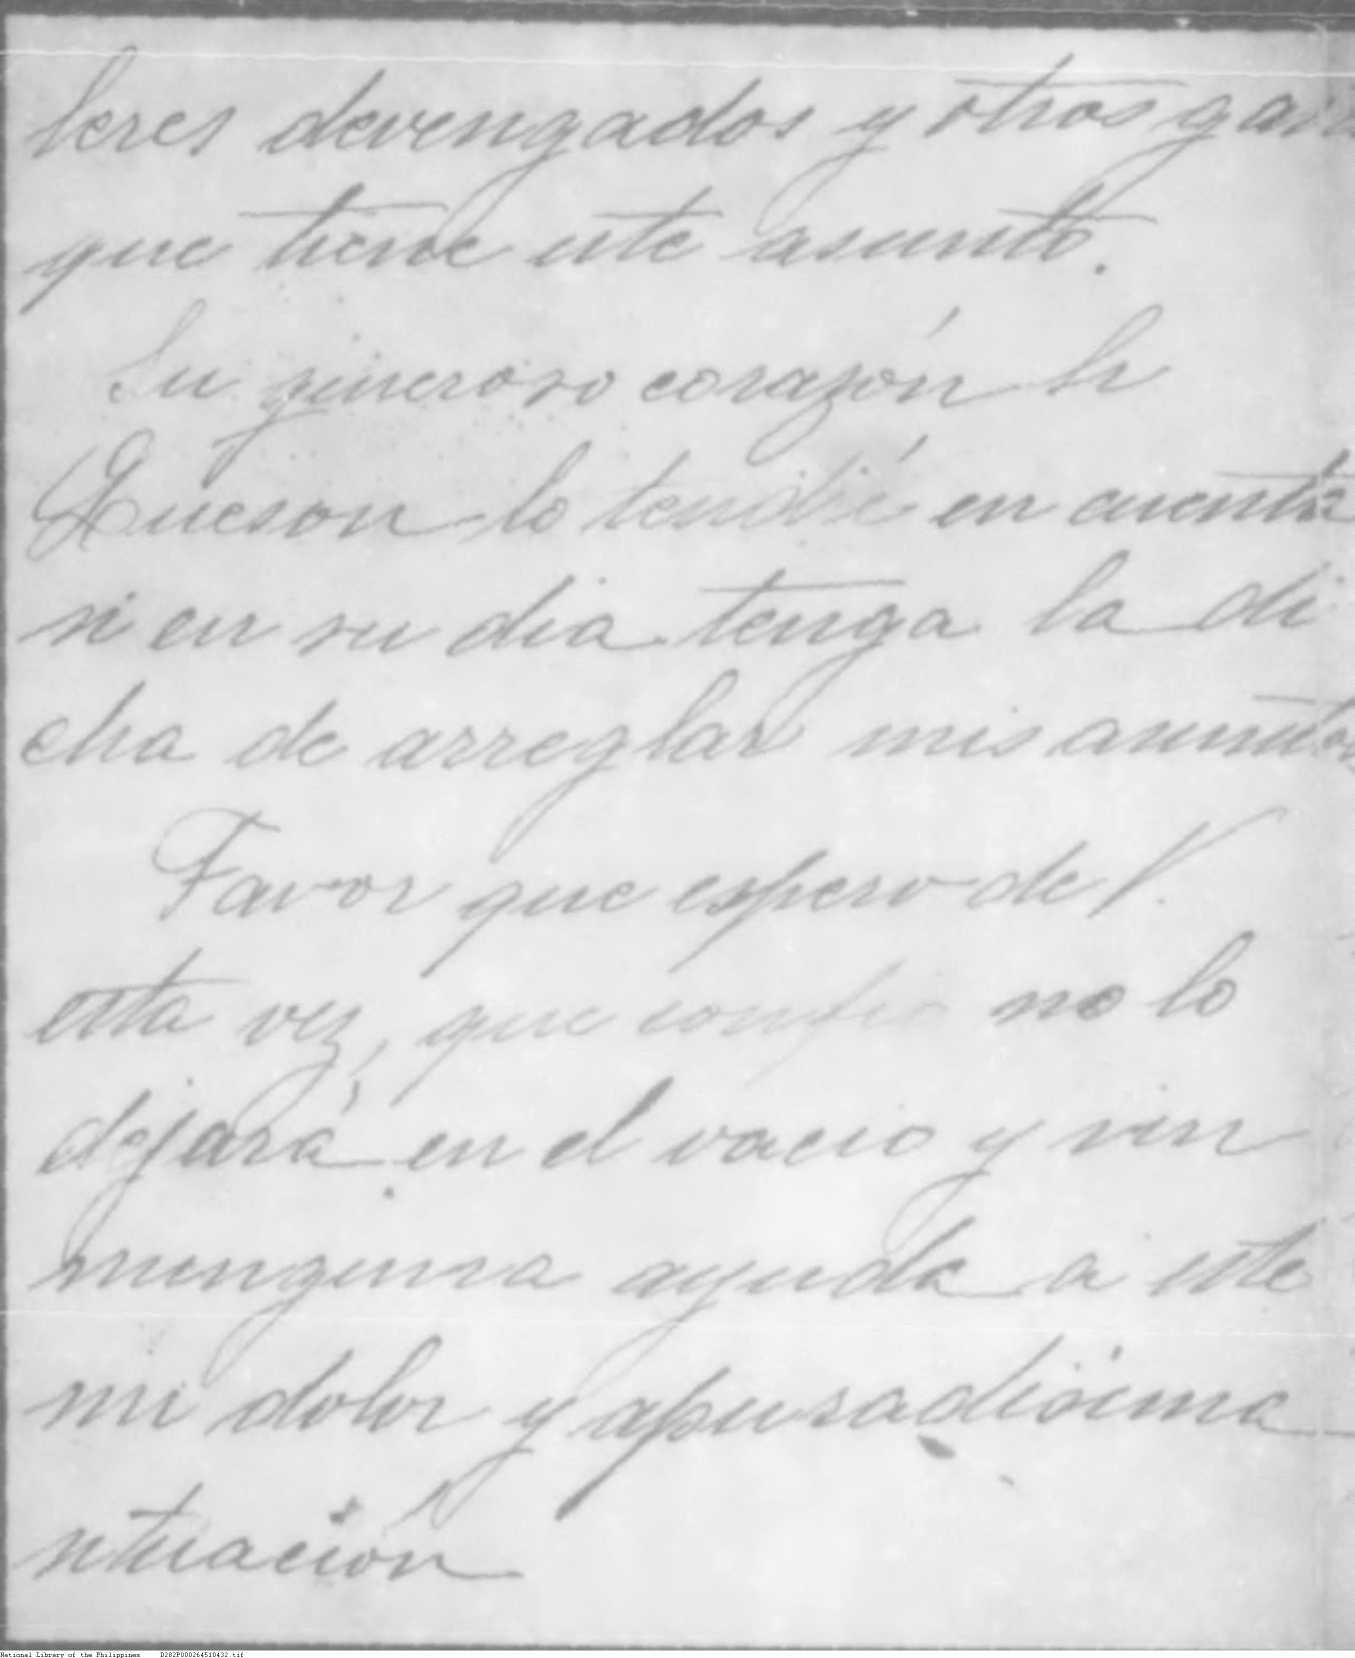 leres devengados y otros gas
que tiene este asunto.
Su generoso corazón Sr
Queson lo tendrá en cuenta
si en su dia tenga la di
cha de arreglar mis asuntos
Favor que espero de V.
esta vez, que confio no lo
dejará en el vacio y sin
ninguna ayuda a este
mi dolor y apuradisima
situación
National Library of the Philippines D282P000264510432.tif